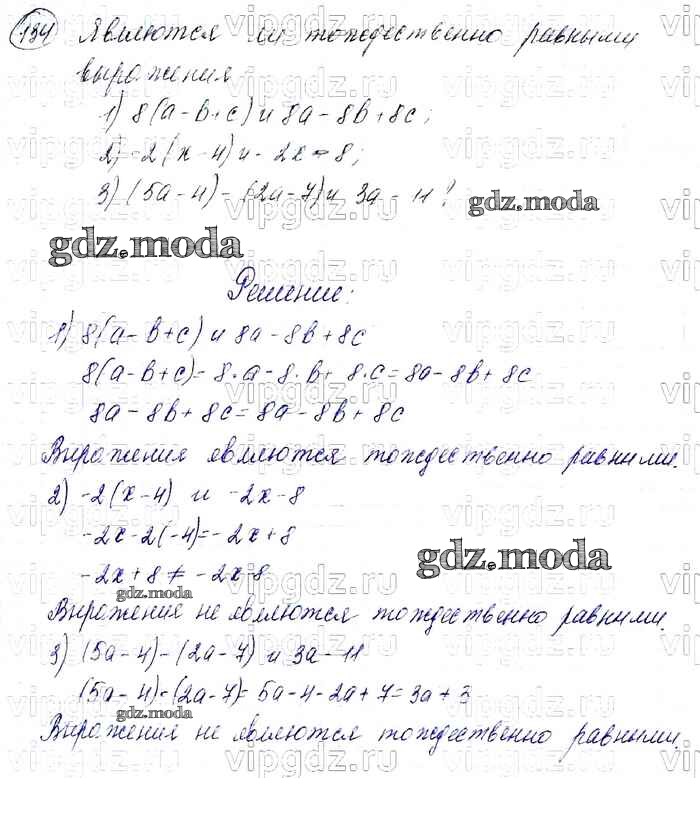 134 Являются ли тождественно равными
выражения
1) 8(a-b+c) и 8a-8b+8c;
2) -2(x-4) и -2x-8;
3) (5a-4)-(2a-7) и 3a-11?
gdz.moda
gdz.moda
Решение:
1) 8(a-b+c) и 8a-8b+8c
8(a-b+c)=8·a-8·b+8·c=8a-8b+8c
8a-8b+8c=8a-8b+8c
Выражения являются тождественно равными.
2) -2(x-4) и -2x-8
-2x-2(-4)=-2x+8
gdz.moda
-2x+8≠-2x-8
gdz.moda
Выражение не являются тождественно равными.
3) (5a-4)-(2a-7) и 3a-11
(5a-4)-(2a-7)=5a-4-2a+7=3a+3
gdz.moda
Выражения не являются тождественно равными.
vipgdz.ru